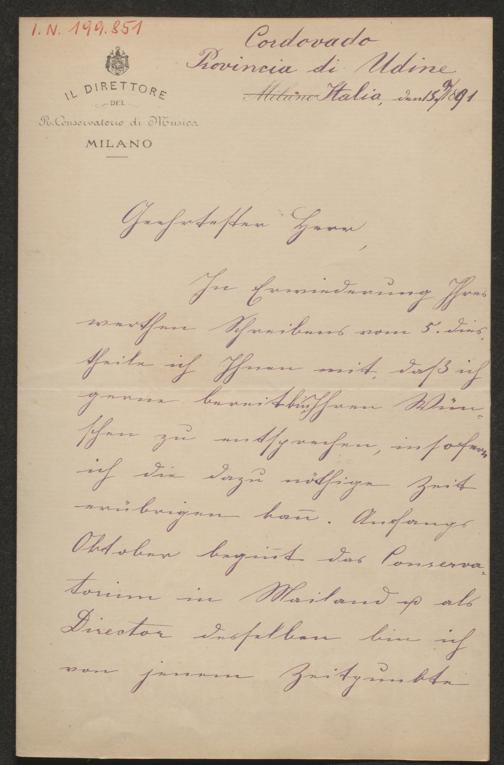 I. N. 199.851
Cordovado
Provincia di Udine
Milano Italia, den 15/9 1891
IL DIRETTORE
DEL
R. Conservatorio di Musica
MILANO
Geehrtester Herr,
In Erwiederung Ihres
werthen Schreibens vom 5. dies.
theile ich Ihnen mit, daß ich
gerne bereit bin Ihren Wün-
schen zu entsprechen, insofern
ich die dazu nöthige Zeit
erübrigen kan̄. Anfangs
Oktober begin̄t das Conserva-
torium in Mailand u als
Director desselben bin ich
von jenem Zeitpunkte